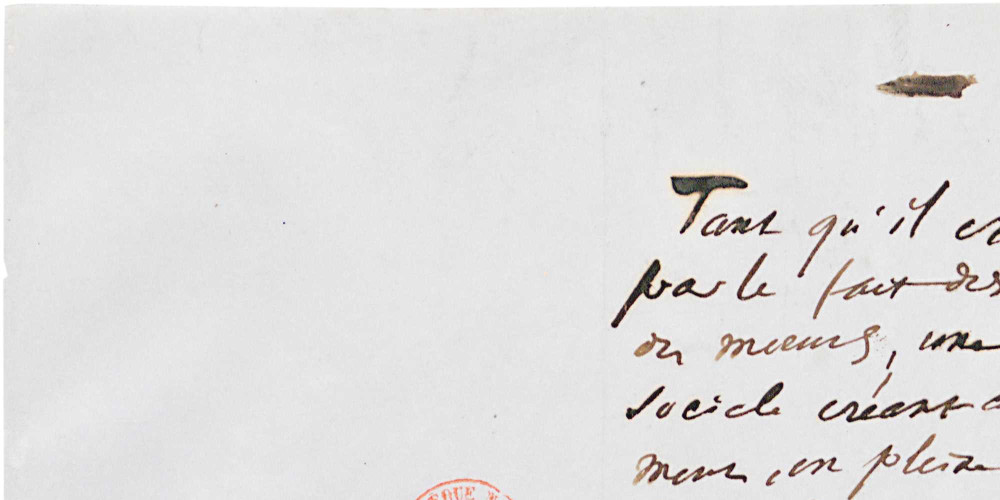 Tant qu'il
par le fait des
du mœurs, une
sociale créant
ment, en pleine